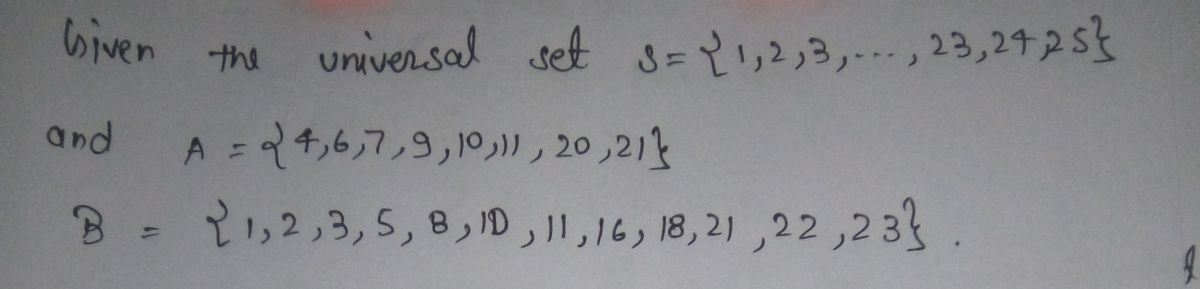 Given the universal set S = {1,2,3,...,23,24,25}
and A = {4,6,7,9,10,11,20,21}
B = {1,2,3,5,8,10,11,16,18,21,22,23}.